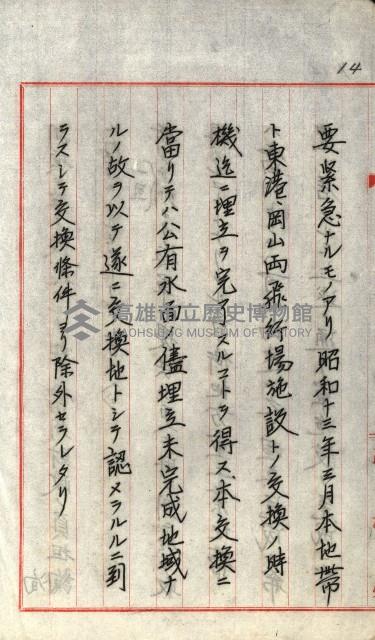 14
要緊急ナルモノアリ昭和十三年三月本地帶
ト東港、岡山両飛行場施設トノ交換ノ時
機迄ニ埋立ヲ完了スルコトヲ得ス本交換ニ
當リテハ公有水面ノ儘埋立未完成地域ナ
ルノ故ヲ以テ遂ニ交換地トシテ認メラルルニ到
ラスシテ交換條件ヨリ除外セラレタリ
高雄市立歷史博物館
KAOHSIUNG MUSEUM OF HISTORY